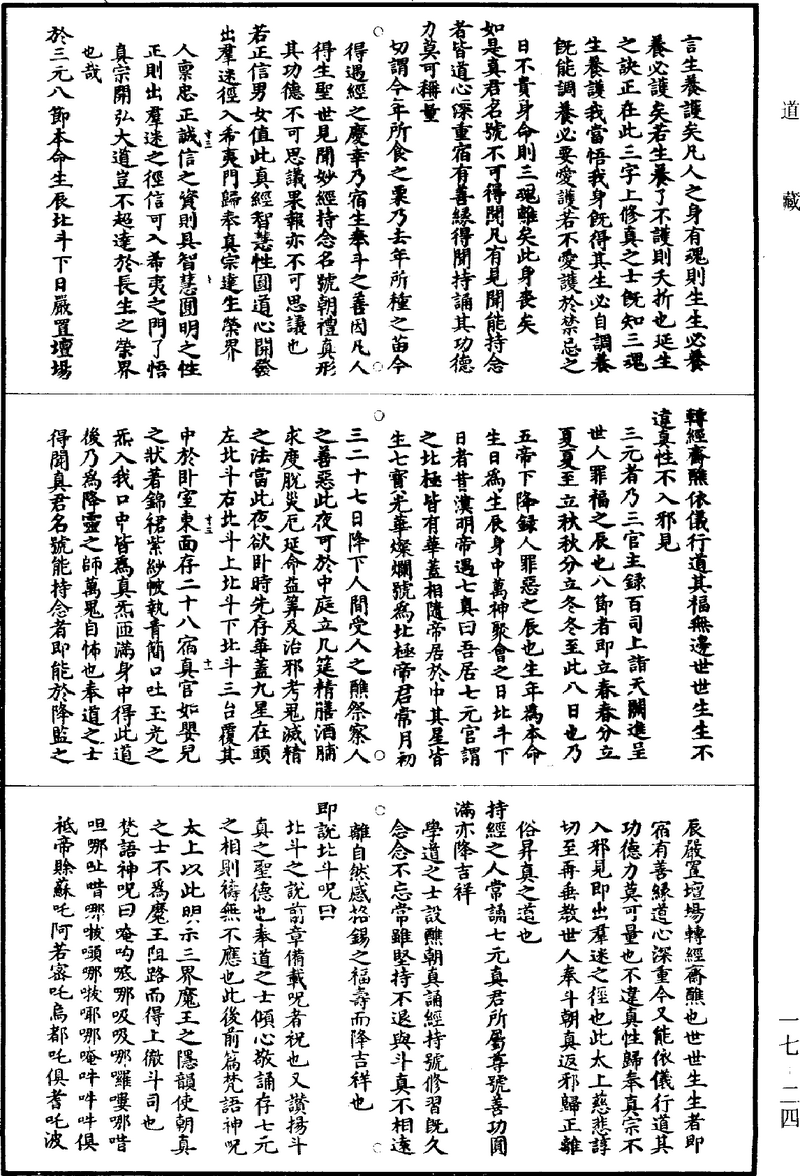 道藏
言生養護矣凡人之身有魂則生生必養
養必護矣若生養了不護則夭折也延生
之訣正在此三字上修真之士既知三魂
生養護我當悟我身既得其生必自調養
既能調養必要愛護若不愛護於禁忌之
日不貴身命則三魂離矣此身喪矣
如是真君名號不可得聞凡有見聞能持念
者皆道心深重宿有善緣得聞持誦其功德
力莫可稱量
切謂今年所食之粟乃去年所種之苗今
得遇經之慶幸乃宿生奉斗之善因凡人
得生聖世見聞妙經持念名號朝禮真形
其功德不可思議果報亦不可思議也
若正信男女值此真經智慧性圓道心開發
出羣迷徑入希夷門歸奉真宗達生榮界
人稟忠正誠信之資則具智慧圓明之性
正則出羣迷之徑信可入希夷之門了悟
真宗開弘大道豈不超達於長生之榮界
也哉
於三元八節本命生辰北斗下日嚴置壇場
轉經齋醮依儀行道其福無邊世世生生不
違真性不入邪見
三元者乃三官主錄百司上詣天闕進呈
世人罪福之辰也八節者即立春春分立
夏夏至立秋秋分立冬冬至此八日也乃
五帝下降錄人罪惡之辰也生年為本命
生日為生辰身中萬神聚會之日北斗下
日者昔漢明帝遇七真曰吾居七元宮謂
之北極皆有華蓋相隨帝居於中其星皆
生七寶光華燦爛號為北極帝君常月初
三二十七日降下人間受人之醮祭察人
之善惡此夜可於中庭立几筵精膳酒脯
求度脫災厄延命益筭及治邪考鬼滅精
之法當此夜欲卧時先存華蓋九星在頭
左北斗右北斗上北斗下北斗三台覆其
中於卧室東面存二十八宿真官如嬰兒
之狀著錦裙紫紗帔執青簡口吐玉光之
炁入我口中皆為真炁匝滿身中得此道
後乃為降靈之師萬鬼自怖也奉道之士
得聞真君名號能持念者即能於降監之
辰嚴置壇場轉經齋醮也世世生生者即
宿有善緣道心深重今又能依儀行道其
功德力莫可量也不違真性歸奉真宗不
入邪見即出羣迷之徑也此太上慈悲諄
切至再垂教世人奉斗朝真返邪歸正離
俗昇真之道也
持經之人常誦七元真君所屬尊號善功圓
滿亦降吉祥
學道之士設醮朝真誦經持號修習既久
念念不忘常雖堅持不退與斗真不相遠
離自然感格錫之福壽而降吉祥也
即說北斗呪曰
北斗之說前章備載呪者祝也又讚揚斗
真之聖德也奉道之士傾心敬誦存七元
之相則禱無不應也此後前篇梵語神呪
太上以此明示三界魔王之隱韻使朝真
之士不為魔王阻路而得上徹斗司也
梵語神呪曰唵哟㡳那吸吸哪囉嘍哪唶
呾哪吆唶哪㗚嗩哪㗚哪哪唵吽吽吽俱
祗帝賖蘇吒阿若密吒烏都吒俱耆吒波
一七 二四